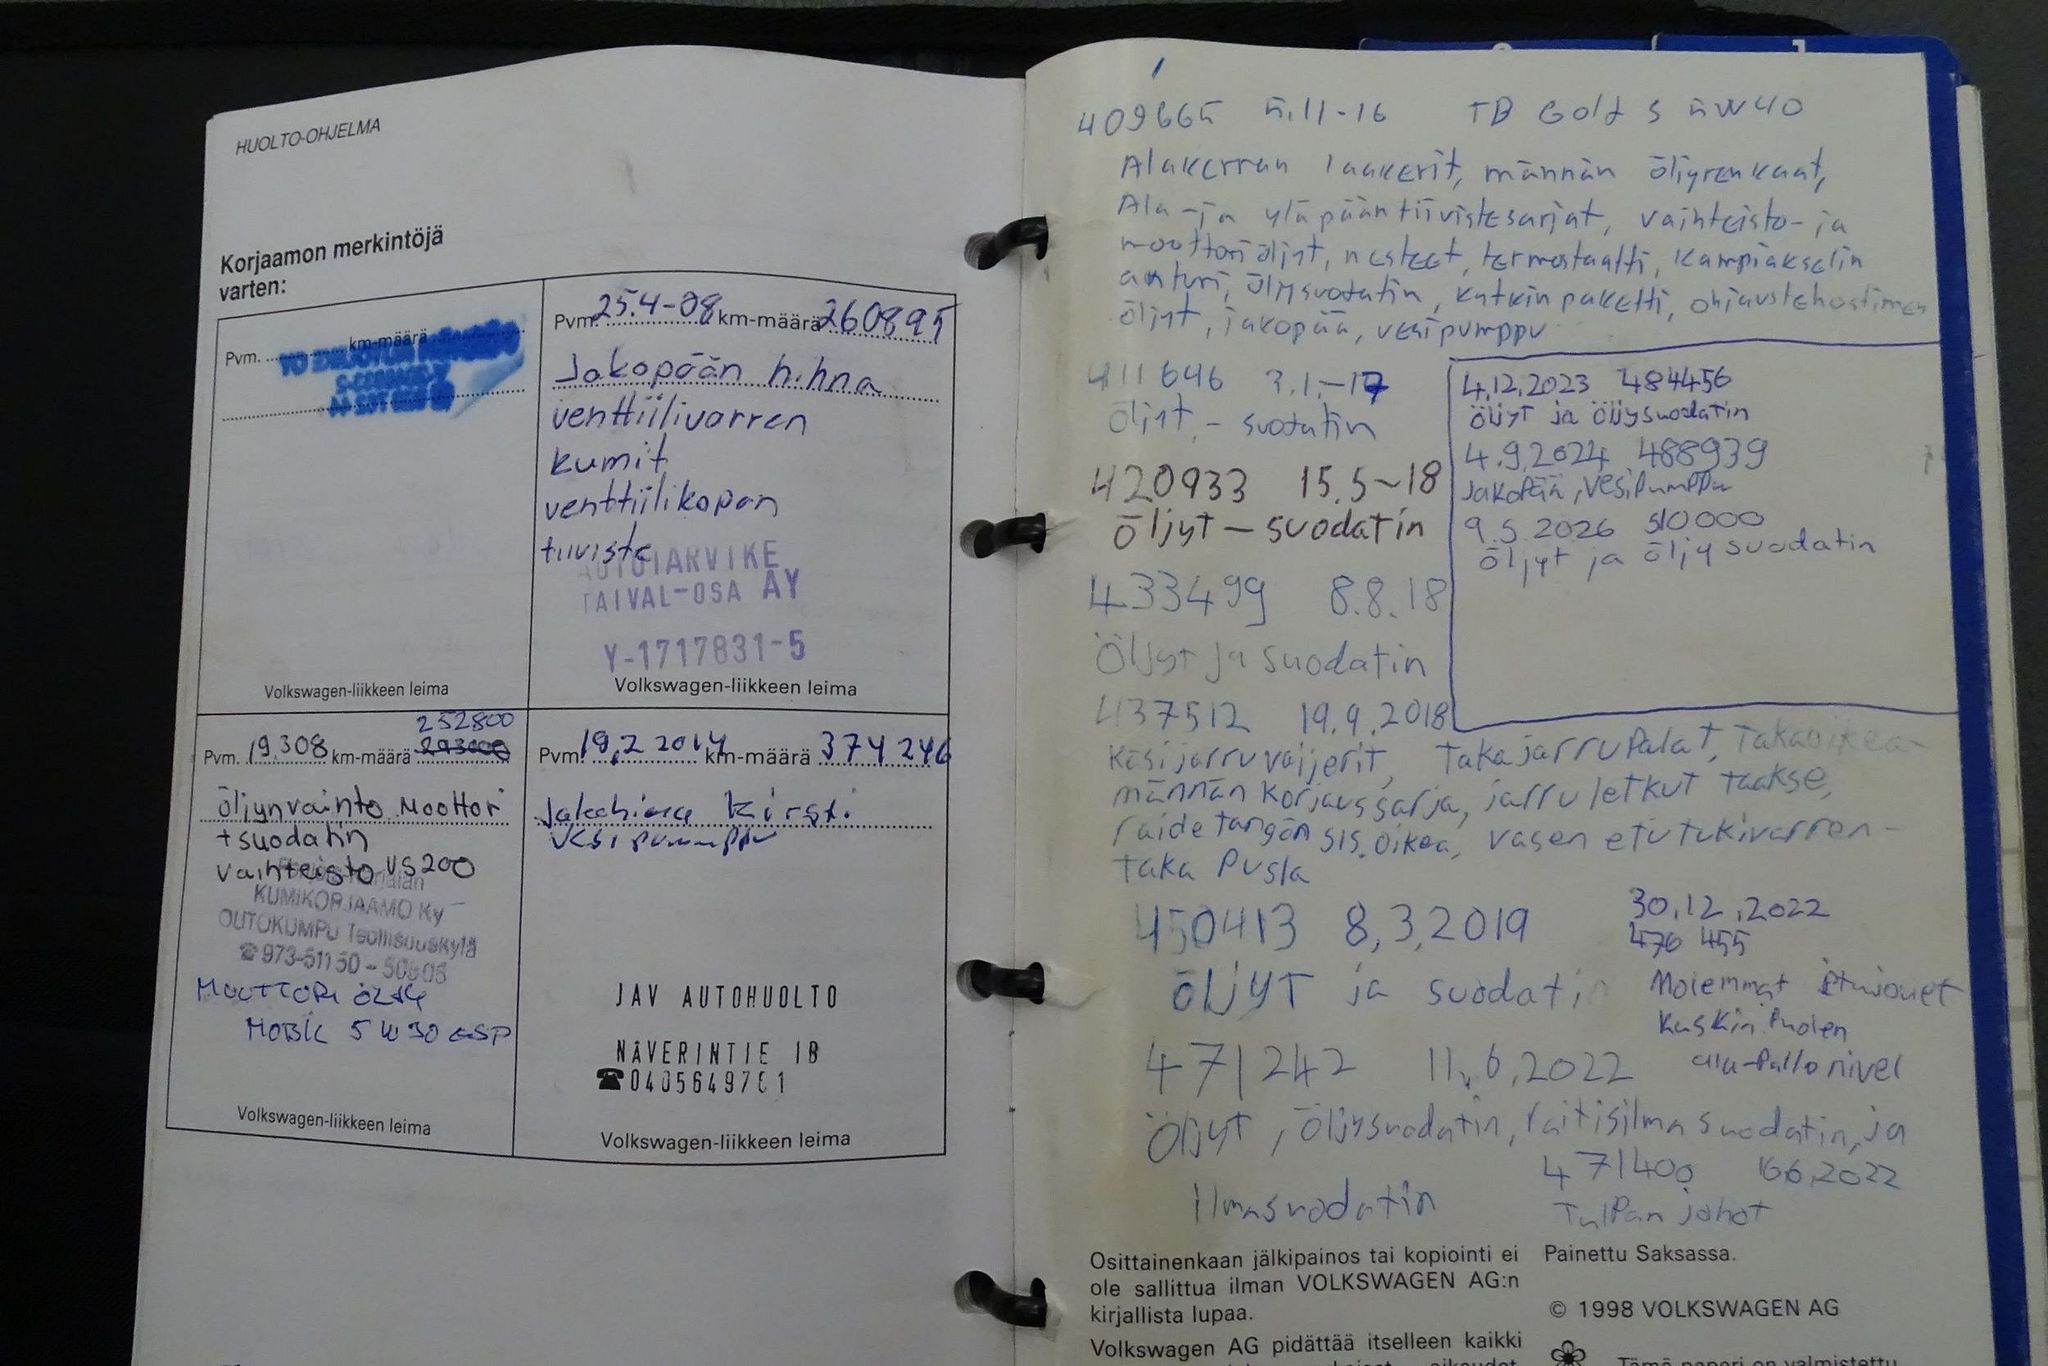 HUOLTO-OHJELMA
Korjaamon merkintöjä
varten:
Pvm. km-määrä
Volkswagen-liikkeen leima
Pvm. 25.4-08 km-määrä 260895
Jakopään hihna
venttiilivarren
kumit
venttiilikopan
tiiviste
AUTOTARVIKE
TAIVAL-OSA AY
Y-1717831-5
Volkswagen-liikkeen leima
252800
Pvm. 19.308 km-määrä
öljynvainto Moottori
+suodatin
vaihteisto VS200
KUMIKORJAAMO Ky
OUTOKUMPU Teollisuuskylä
☎973-51150 - 50505
MOOTTORI ÖLJY
MOBIL 5W30 ESP
Volkswagen-liikkeen leima
Pvm. 19.2 2014 km-määrä 374246
vesipumppu
JAV AUTOHUOLTO
NÄVERINTIE 1B
☎0405649761
Volkswagen-liikkeen leima
409665 5.11-16 TB Gold S 5W40
Alakerran laakerit, männän öljyrenkaat,
Ala-ja yläpään tiivistesarjat, vaihteisto-ja
moottoriöljyt, nesteet, termostaatti, kampiakselin
anturi, öljysuodatin, katkin paketti, ohjaustehostimen
öljyt, jakopää, vesipumppu
411646 3.1.-17
öljyt,- suodatin
420933 15.5-18
öljyt-suodatin
433499 8.8.18
Öljyt ja suodatin
4.12.2023 484456
öljyt ja öljysuodatin
4.9.2024 488939
Jakopää, vesipumppu
9.5 2026 510000
öljyt ja öljysuodatin
437512 19.9.2018
Käsijarruvaijerit, takajarrupalat, takaoikea-
männän korjaussarja, jarruletkut taakse,
raidetangon sis. oikea, vasen etutukivarren-
taka pusla
450413 8,3,2019
öljyt ja suodatin
30.12.2022
476 455
Molemmat etujouset
kuskin puolen
ala-pallonivel
471242 11.6.2022
Öljyt, öljysuodatin, raitisilmasuodatin, ja
ilmasuodatin
471400 16.6.2022
Tulpan johot
Osittainenkaan jälkipainos tai kopiointi ei
ole sallittua ilman VOLKSWAGEN AG:n
kirjallista lupaa.
Volkswagen AG pidättää itselleen kaikki
Painettu Saksassa.
© 1998 VOLKSWAGEN AG
Tämä paperi on valmistettu